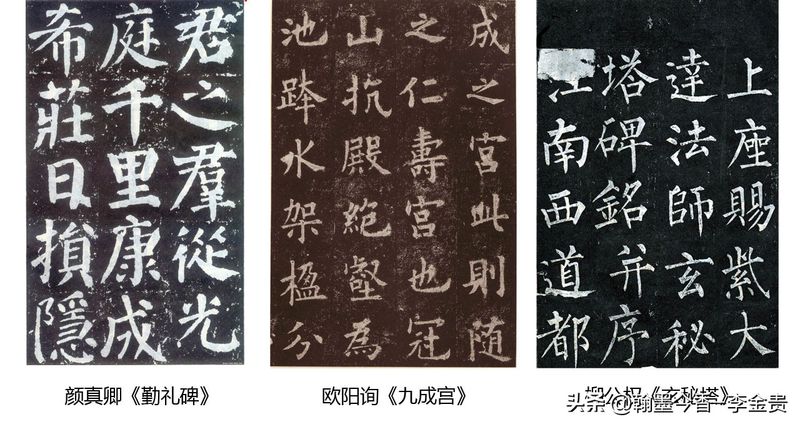 君之羣從光
庭千里康成
希莊日損隱
成之宮此則随
之仁壽宮也冠
山抗殿絶壑為
池跨水架楹分
上座賜紫大
達法師玄秘
塔碑銘并序
江南西道都
颜真卿《勤礼碑》
欧阳询《九成宫》
柳公权《玄秘塔》
头条@翰墨今香-李金贵